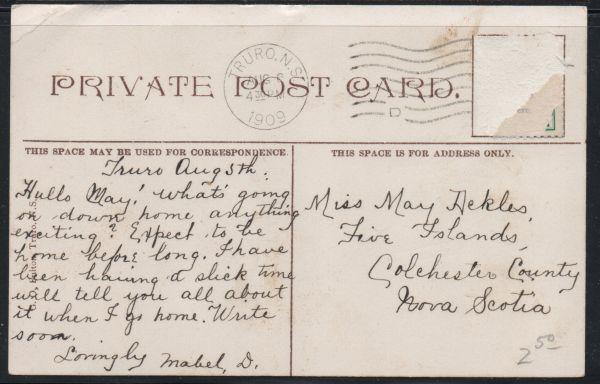 TRURO, N.S.
AUG 6
1909
D
PRIVATE POST CARD.
THIS SPACE MAY BE USED FOR CORRESPONDENCE.
THIS SPACE IS FOR ADDRESS ONLY.
Truro Aug 5th.
Hullo May! what's going
on down home anything
exciting? Expect to be
home before long. I have
been having a slick time
will tell you all about
it when I go home. Write
soon.
Lovingly Mabel, D.
Miss May Ackles,
Five Islands,
Colchester County
Nova Scotia
2.50